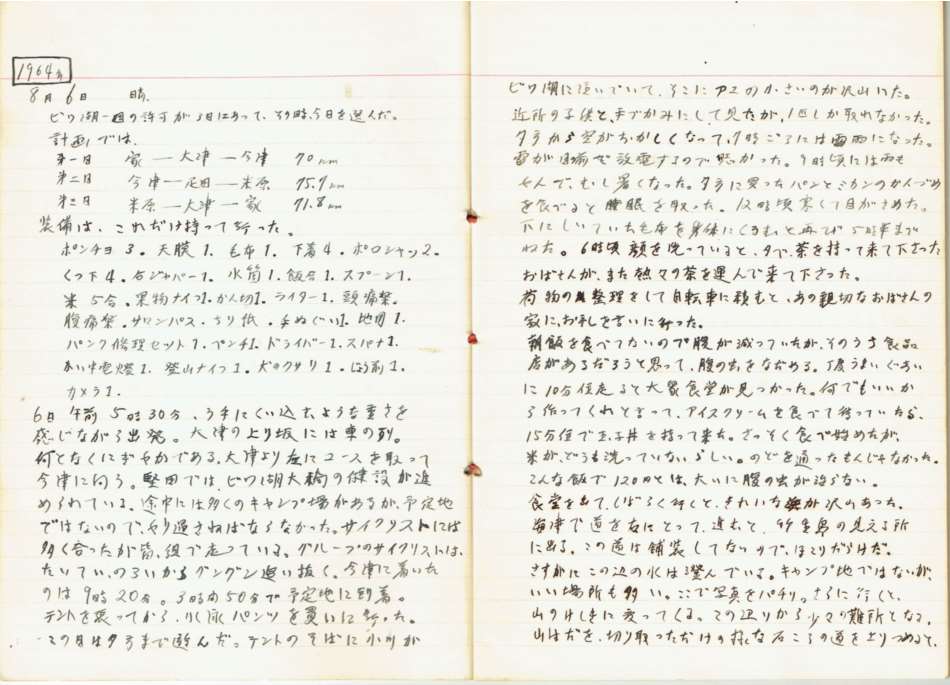 1964年
8月6日 晴
ビワ湖一週の許すが3日にあって、その時、今日を選んだ。
計画では、
第一日 家—大津—今津 70km
第二日 今津—疋田—米原 75.7km
第三日 米原—大津—家 71.8km
装備は、これだけ持って行った。
ポンチョ3. 天膜1. 毛布1. 下着4. ポロシャツ2.
くつ下4. 合ジャパー1. 水筒1. 飯合1. スプーン1.
米5合. 果物ナイフ1. かん切1. ライター1. 頭痛薬.
腹痛薬. サロンパス. ちり紙. 手ぬぐい1. 地図1.
パンク修理セット1. ペンチ1. ドライバー1. スパナ1.
かい中電燈1. 登山ナイフ1. 犬のクサリ1. じょう前1.
カメラ1.
6日 午前5時30分、うでにくい込むような重さを
感じながら出発。大津の上り坂には車の列。
何となくにぎやかである。大津より左にコースを取って
今津に向う。堅田では、ビワ湖大橋の建設が進
められている。途中には多くのキャンプ場があるが、予定地
ではないので、やり過さねばならなかった。サイクリストには
多く合ったが皆、組で走っている。グループのサイクリストは、
たいてい、のろいからグングン追い抜く。今津に着いた
のは9時20分。3時間50分で予定地に到着。
テントを張ってから、水泳パンツを買いに行った。
この日は夕方まで遊んだ。テントのそばに小川が
ビワ湖に注いでいて、そこにアユの小さいのが沢山いた。
近所の子供と、手づかみにして見たが、1匹しか取れなかった。
夕方から空がおかしくなって、7時ごろには雷雨になった。
雷が目前で放電するので恐かった。9時頃には雨も
やんで、むし暑くなった。夕方に買ったパンとミカンのかんづめ
を食べると睡眠を取った。12時頃寒くて目がさめた。
下にしいていた毛布を身体にくるむと再び5時半まで
ねた。6時頃顔を洗っていると、夕べ、茶を持って来て下さった
おばさんが、また熱々の茶を運んで来て下さった。
荷物の整理をして自転車に積むと、あの親切なおばさんの
家に、お礼を言いに行った。
朝飯を食べてないので腹が減っていたが、そのうち食品
店があるだろうと思って、腹の虫をなだめる。丁度うまいぐあい
に10分位走ると大衆食堂が見つかった。何でもいいか
ら作ってくれと言って、アイスクリームを食べて待っていたら、
15分位で玉子丼を持って来た。さっそく食べ始めたが、
米が、どうも洗っていないらしい。のどを通ったもんじゃなかった。
こんな飯で120円とは、大いに腹の虫が治らない。
食堂を出て、しばらく行くと、きれいな浜が沢山あった。
海津で道を右にとって、進むと、竹生島の見える所
に出る。この道は舗装してないので、ほこりだらけだ。
さすがにこの辺の水は澄んでいる。キャンプ地ではないが、
いい場所も多い。ここで写真をパチリ。さらに行くと、
山のけしきに変ってくる。この辺りから少々の難所となる。
山はだを、切り取っただけの様な石ころの道を上りつめると、